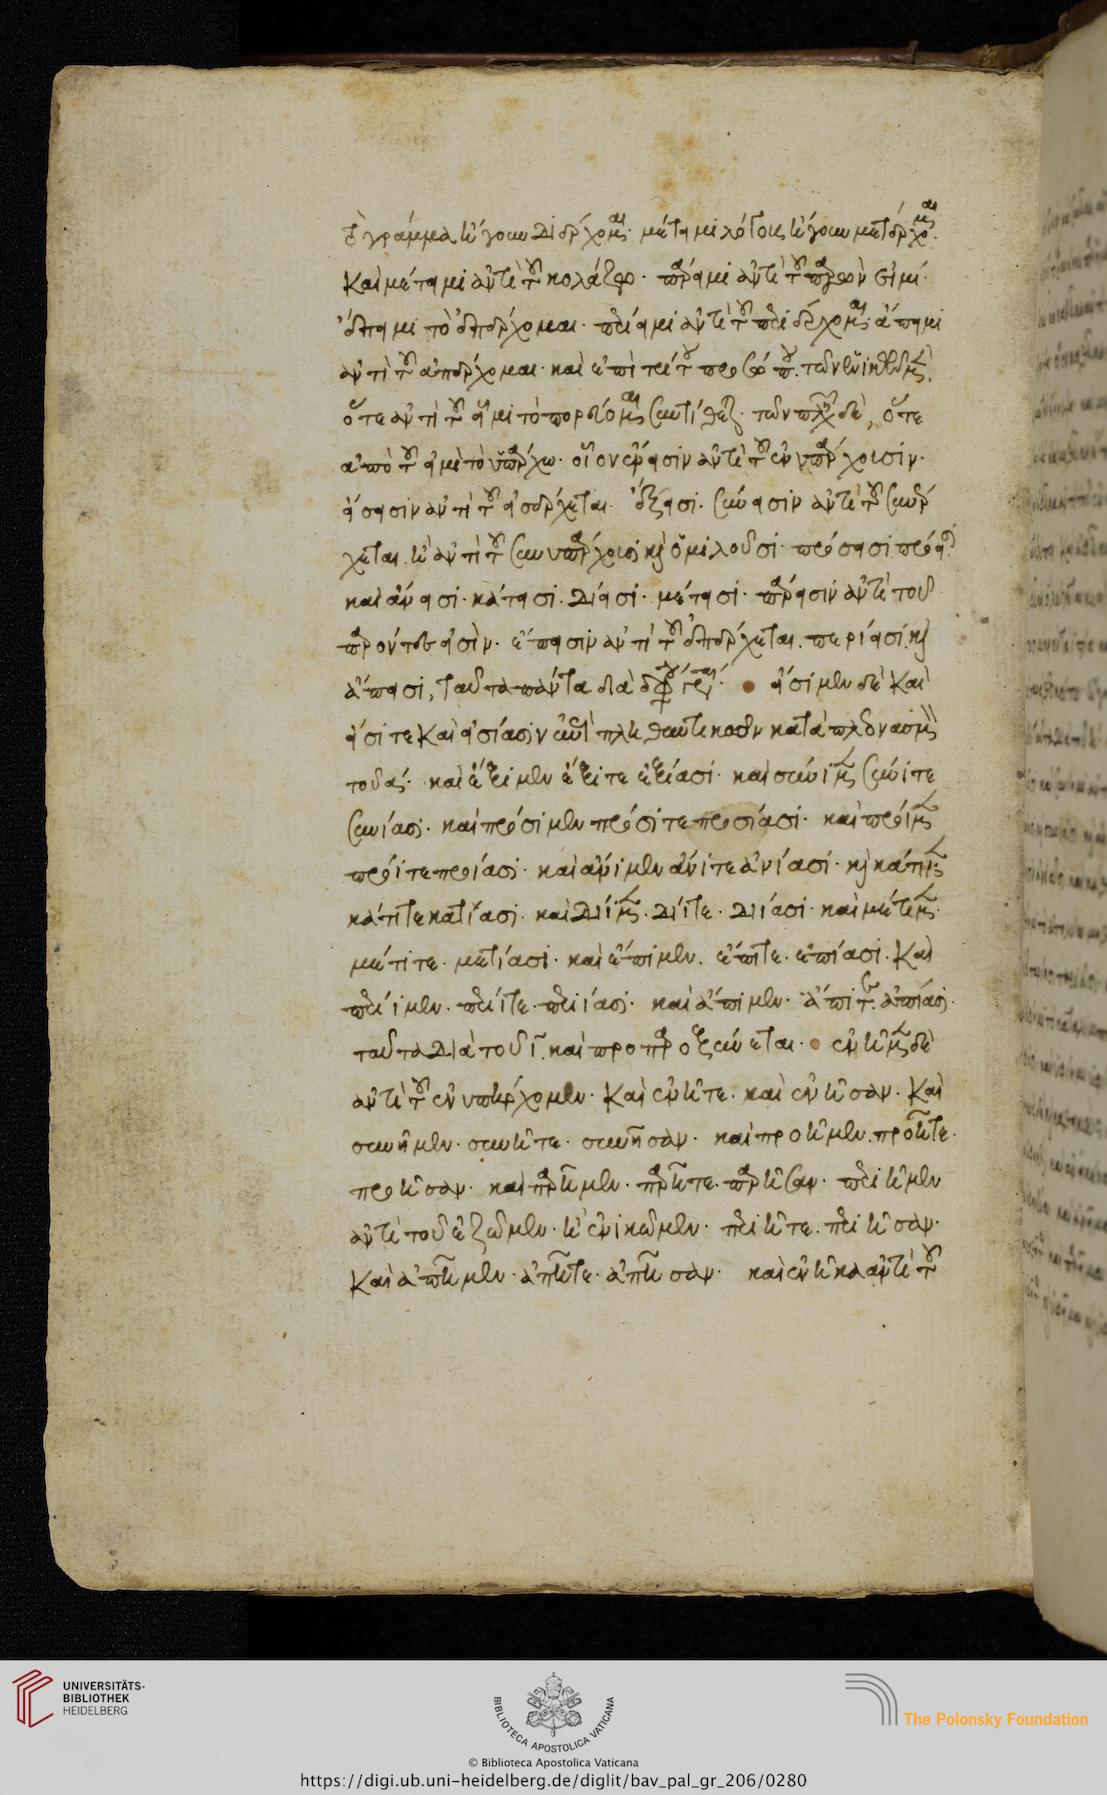 γράμμα ἤγουν διέρχομαι. μέτειμι λόγοις ἤγουν μετέρχομαι.
Καὶ μέτειμι ἀντὶ τοῦ κολάζω. πάρειμι ἀντὶ τοῦ παρὼν εἰμί.
ἔπειμι τὸ ἐπέρχομαι. περίειμι ἀντὶ τοῦ περιέρχομαι ἄπειμι
ἀντὶ τοῦ ἀπέρχομαι. καὶ ἐπὶ τρίτου προσώπου. τῶν
ὅτε ἀντὶ τοῦ εἶμι τὸ πορεύομαι συντίθεται. τῶν δὲ, ὅτε
ἀπὸ τοῦ εἰμὶ τὸ ὑπάρχω. οἷον ἔνεισιν ἀντὶ τοῦ ἐνυπάρχουσιν.
εἴσεισιν ἀντὶ τοῦ εἰσέρχεται. ἔξεισι. σύνεισιν ἀντὶ τοῦ συνέρ
χεται. ἢ ἀντὶ τοῦ συνυπάρχουσι καὶ ὁμιλοῦσι. πρόσεισι πρόει
καὶ ἄνεισι. κάτεισι. δίεισι. μέτεισι. πάρεισιν ἀντὶ τοῦ
παρόντες εἰσὶν. ἔπεισιν ἀντὶ τοῦ ἐπέρχεται. περίεισι. καὶ
ἄπεισι, ταῦτα πάντα διὰ διφθόγγου. εἴσιμεν δὲ καὶ
εἴσιτε καὶ εἰσίασιν πληθυντικὸν κατὰ πλεονασμὸν
τοῦ α. καὶ ἔξιμεν ἔξιτε ἐξίασι. καὶ σύνιμεν σύνιτε
συνίασι. καὶ πρόσιμεν πρόσιτε προσίασι. καὶ πρόιμεν
πρόιτε προίασι. καὶ ἄνιμεν ἄνιτε ἀνίασι. καὶ κάτιμεν
κάτιτε κατίασι. καὶ δίιμεν. δίιτε. διίασι. καὶ μέτιμεν.
μέτιτε. μετίασι. καὶ ἔπιμεν. ἔπιτε. ἐπίασι. Καὶ
περίιμεν. περίιτε. περιίασι. καὶ ἄπιμεν. ἄπιτε. ἀπίασι.
ταῦτα διὰ τοῦ ι. καὶ προπαροξύνεται. ἐνῆμεν δὲ
ἀντὶ τοῦ ἐνυπήρχομεν. Καὶ ἐνῆτε. καὶ ἐνῆσαν. Καὶ
συνῆμεν. συνῆτε. συνῆσαν. καὶ προῆμεν. προῆτε.
προῆσαν. καὶ παρῆμεν. παρῆτε. παρῆσαν. περιῆμεν
ἀντὶ τοῦ ἐζῶμεν. ἢ ἐνικῶμεν. περιῆτε. περιῆσαν.
Καὶ ἀπῆμεν. ἀπῆτε. ἀπῆσαν. καὶ ἐνῆκα ἀντὶ τοῦ
UNIVERSITÄTS-
BIBLIOTHEK
HEIDELBERG
BIBLIOTECA APOSTOLICA VATICANA
The Polonsky Foundation
© Biblioteca Apostolica Vaticana
https://digi.ub.uni-heidelberg.de/diglit/bav_pal_gr_206/0280